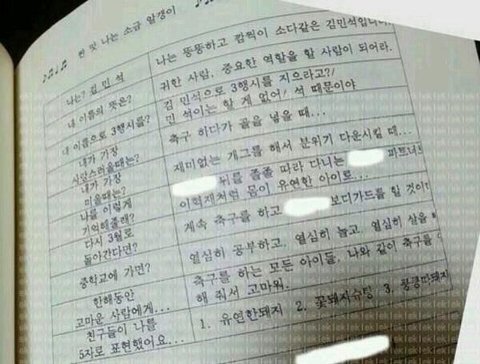 ♪♫♩♬ 한 맛 나는 소금 알갱이 ♪♫♩
나는? 김 민 석
나는 뚱뚱하고 깜찍이 소다같은 김민석입니
내 이름의 뜻은?
귀한 사람, 중요한 역할을 할 사람이 되어라.
내 이름으로 3행시를?
김 민석으로 3행시를 지으라고?!
민 석이는 할 게 없어! 석 때문이야
내가 가장
사랑스러울때는?
축구 하다가 골을 넣을 때...
내가 가장
미울때는?
재미없는 개그를 해서 분위기 다운시킬 때...
나를 이렇게
기억해줄래?
뒤를 졸졸 따라 다니는 파트너
이혁재처럼 몸이 유연한 아이로...
다시 3월로
돌아간다면?
계속 축구를 하고 보디가드를 할 것이
중학교에 가면?
열심히 공부하고, 열심히 놀고, 열심히 살을
한해동안
고마운 사람에게...
축구를 하는 모든 아이들, 나와 같이 축구를
해 줘서 고마워.
친구들이 나를
5자로 표현했어요...
1. 유연한돼지 2. 꽃돼지슈팅 3.